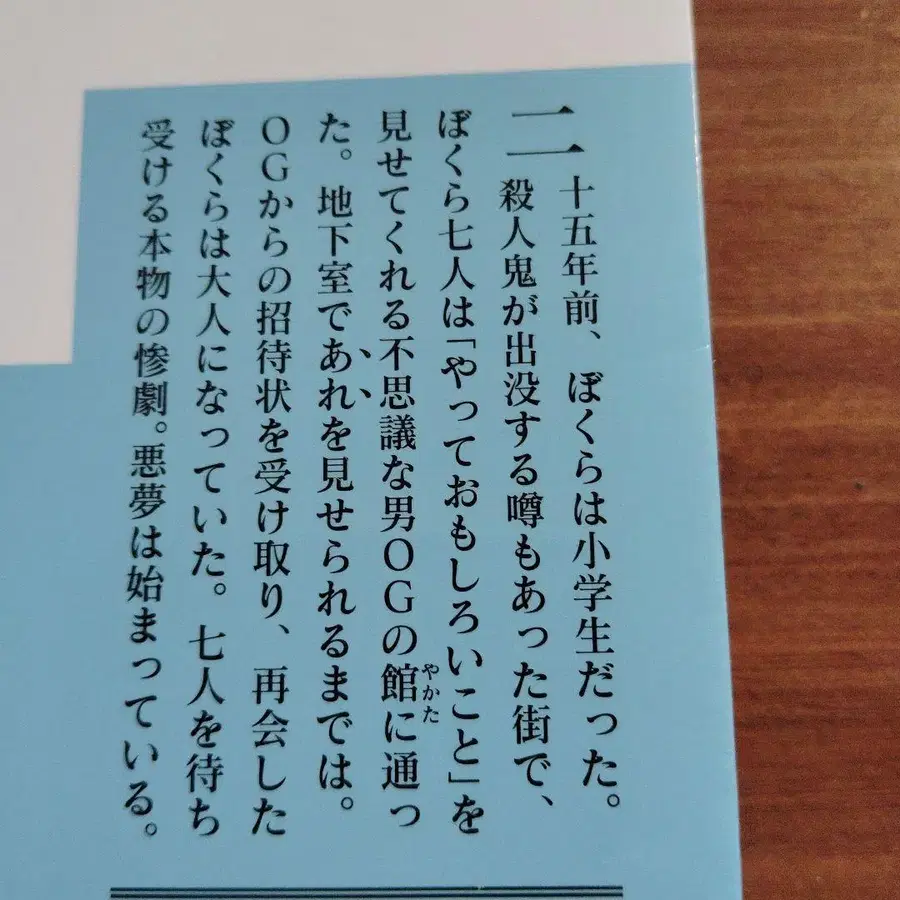 二十五年前、ぼくらは小学生だった。
殺人鬼が出没する噂もあった街で、
ぼくら七人は「やっておもしろいこと」を
見せてくれる不思議な男OGの館に通っ
やかた
た。地下室であれを見せられるまでは。
OGからの招待状を受け取り、再会した
ぼくらは大人になっていた。七人を待ち
受ける本物の惨劇。悪夢は始まっている。